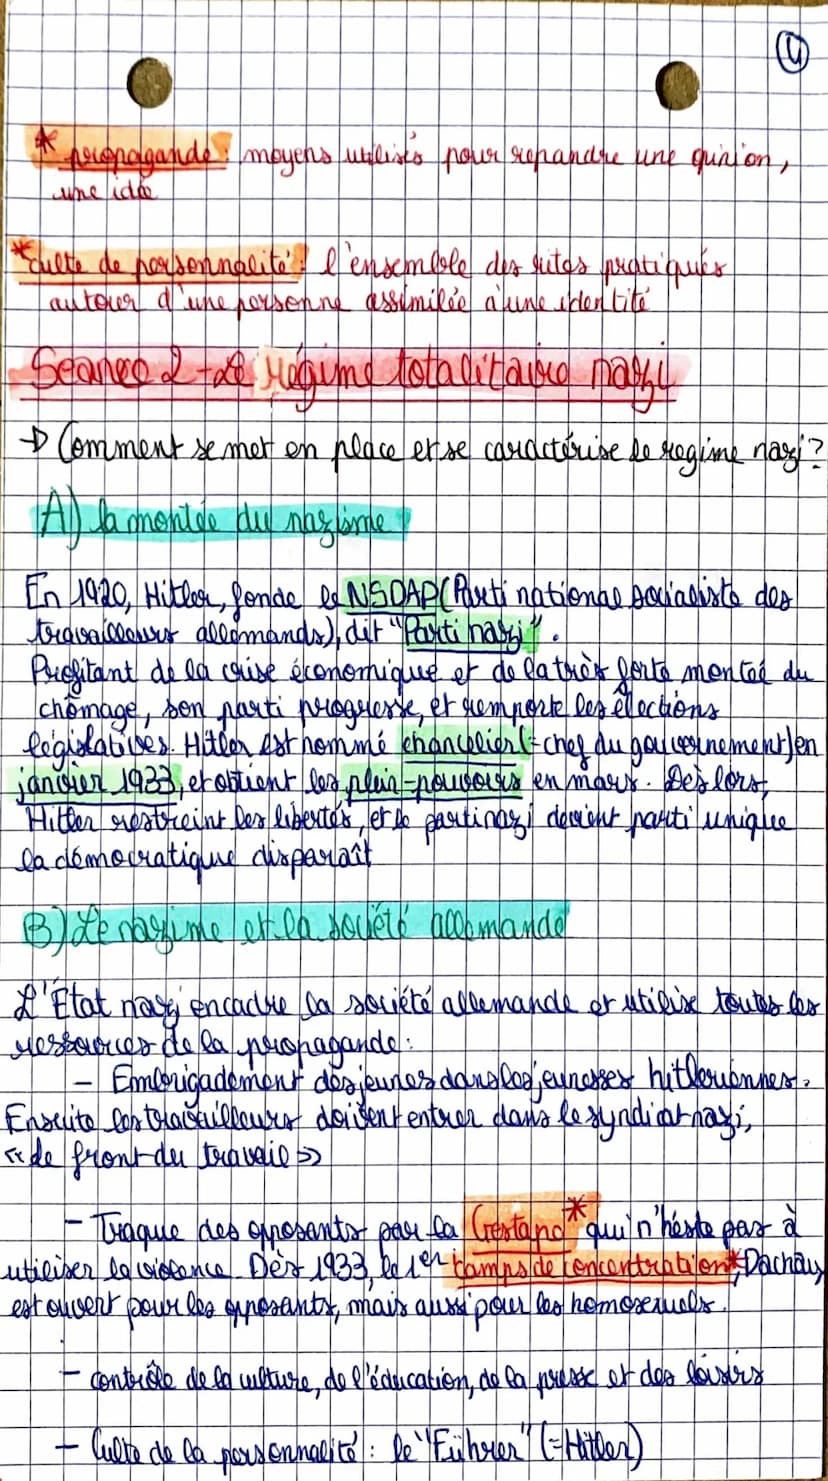 4
* propagande : moyens utilisés pour repandre une opinion,
une idée
*culte de personnalité : l'ensemble des rites pratiqués
autour d'une personne assimilée a une identité
Séance 2 - Le régime totalitaire nazi
→ Comment se met en place et se caractérise le regime nazi ?
A) la montée du nazisme
En 1920, Hitler, fonde le NSDAP (Parti national socialiste des
travailleurs allemands), dit "Parti nazi".
Profitant de la crise économique et de la très forte monteé du
chômage, son parti progresse, et remporte les élections
législatives. Hitler est nommé chancelier (= chef du gouvernement) en
janvier 1933, et obtient les plein-pouvoirs en mars. Dès lors,
Hitler restreint les libertés, et le parti nazi devient parti unique
la démocratique disparaît
B) Le nazisme et la société allemande
L'État nazi encadre la société allemande et utilise toutes les
ressources de la propagande :
- Embrigadement des jeunes dans les jeunesses hitleriennes.
Ensuite les travailleurs doivent entrer dans le syndicat nazi,
« de front du travail »
- Traque des opposants par la Gestapo* qui n'hésite pas à
utiliser la violence. Dès 1933, le 1er camps de concentration*, Dachau,
est ouvert pour les opposants, mais aussi pour les homosexuels.
- contrôle de la culture, de l'éducation, de la presse et des loisirs
- Culte de la personnalité : le "Führer" (=Hitler)